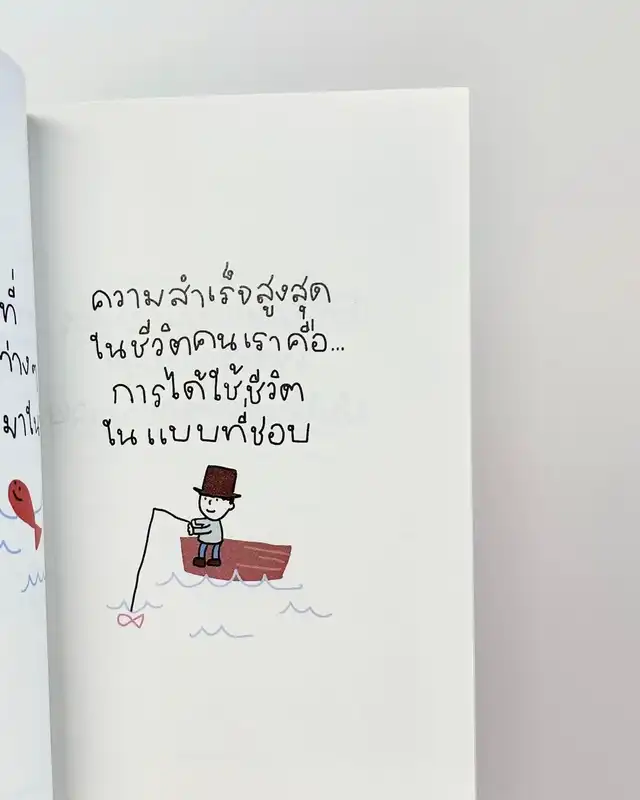 ที่
ต่างๆ
มาใน
ความสำเร็จสูงสุด
ในชีวิตคนเราคือ...
การได้ใช้ชีวิต
ในแบบที่ชอบ